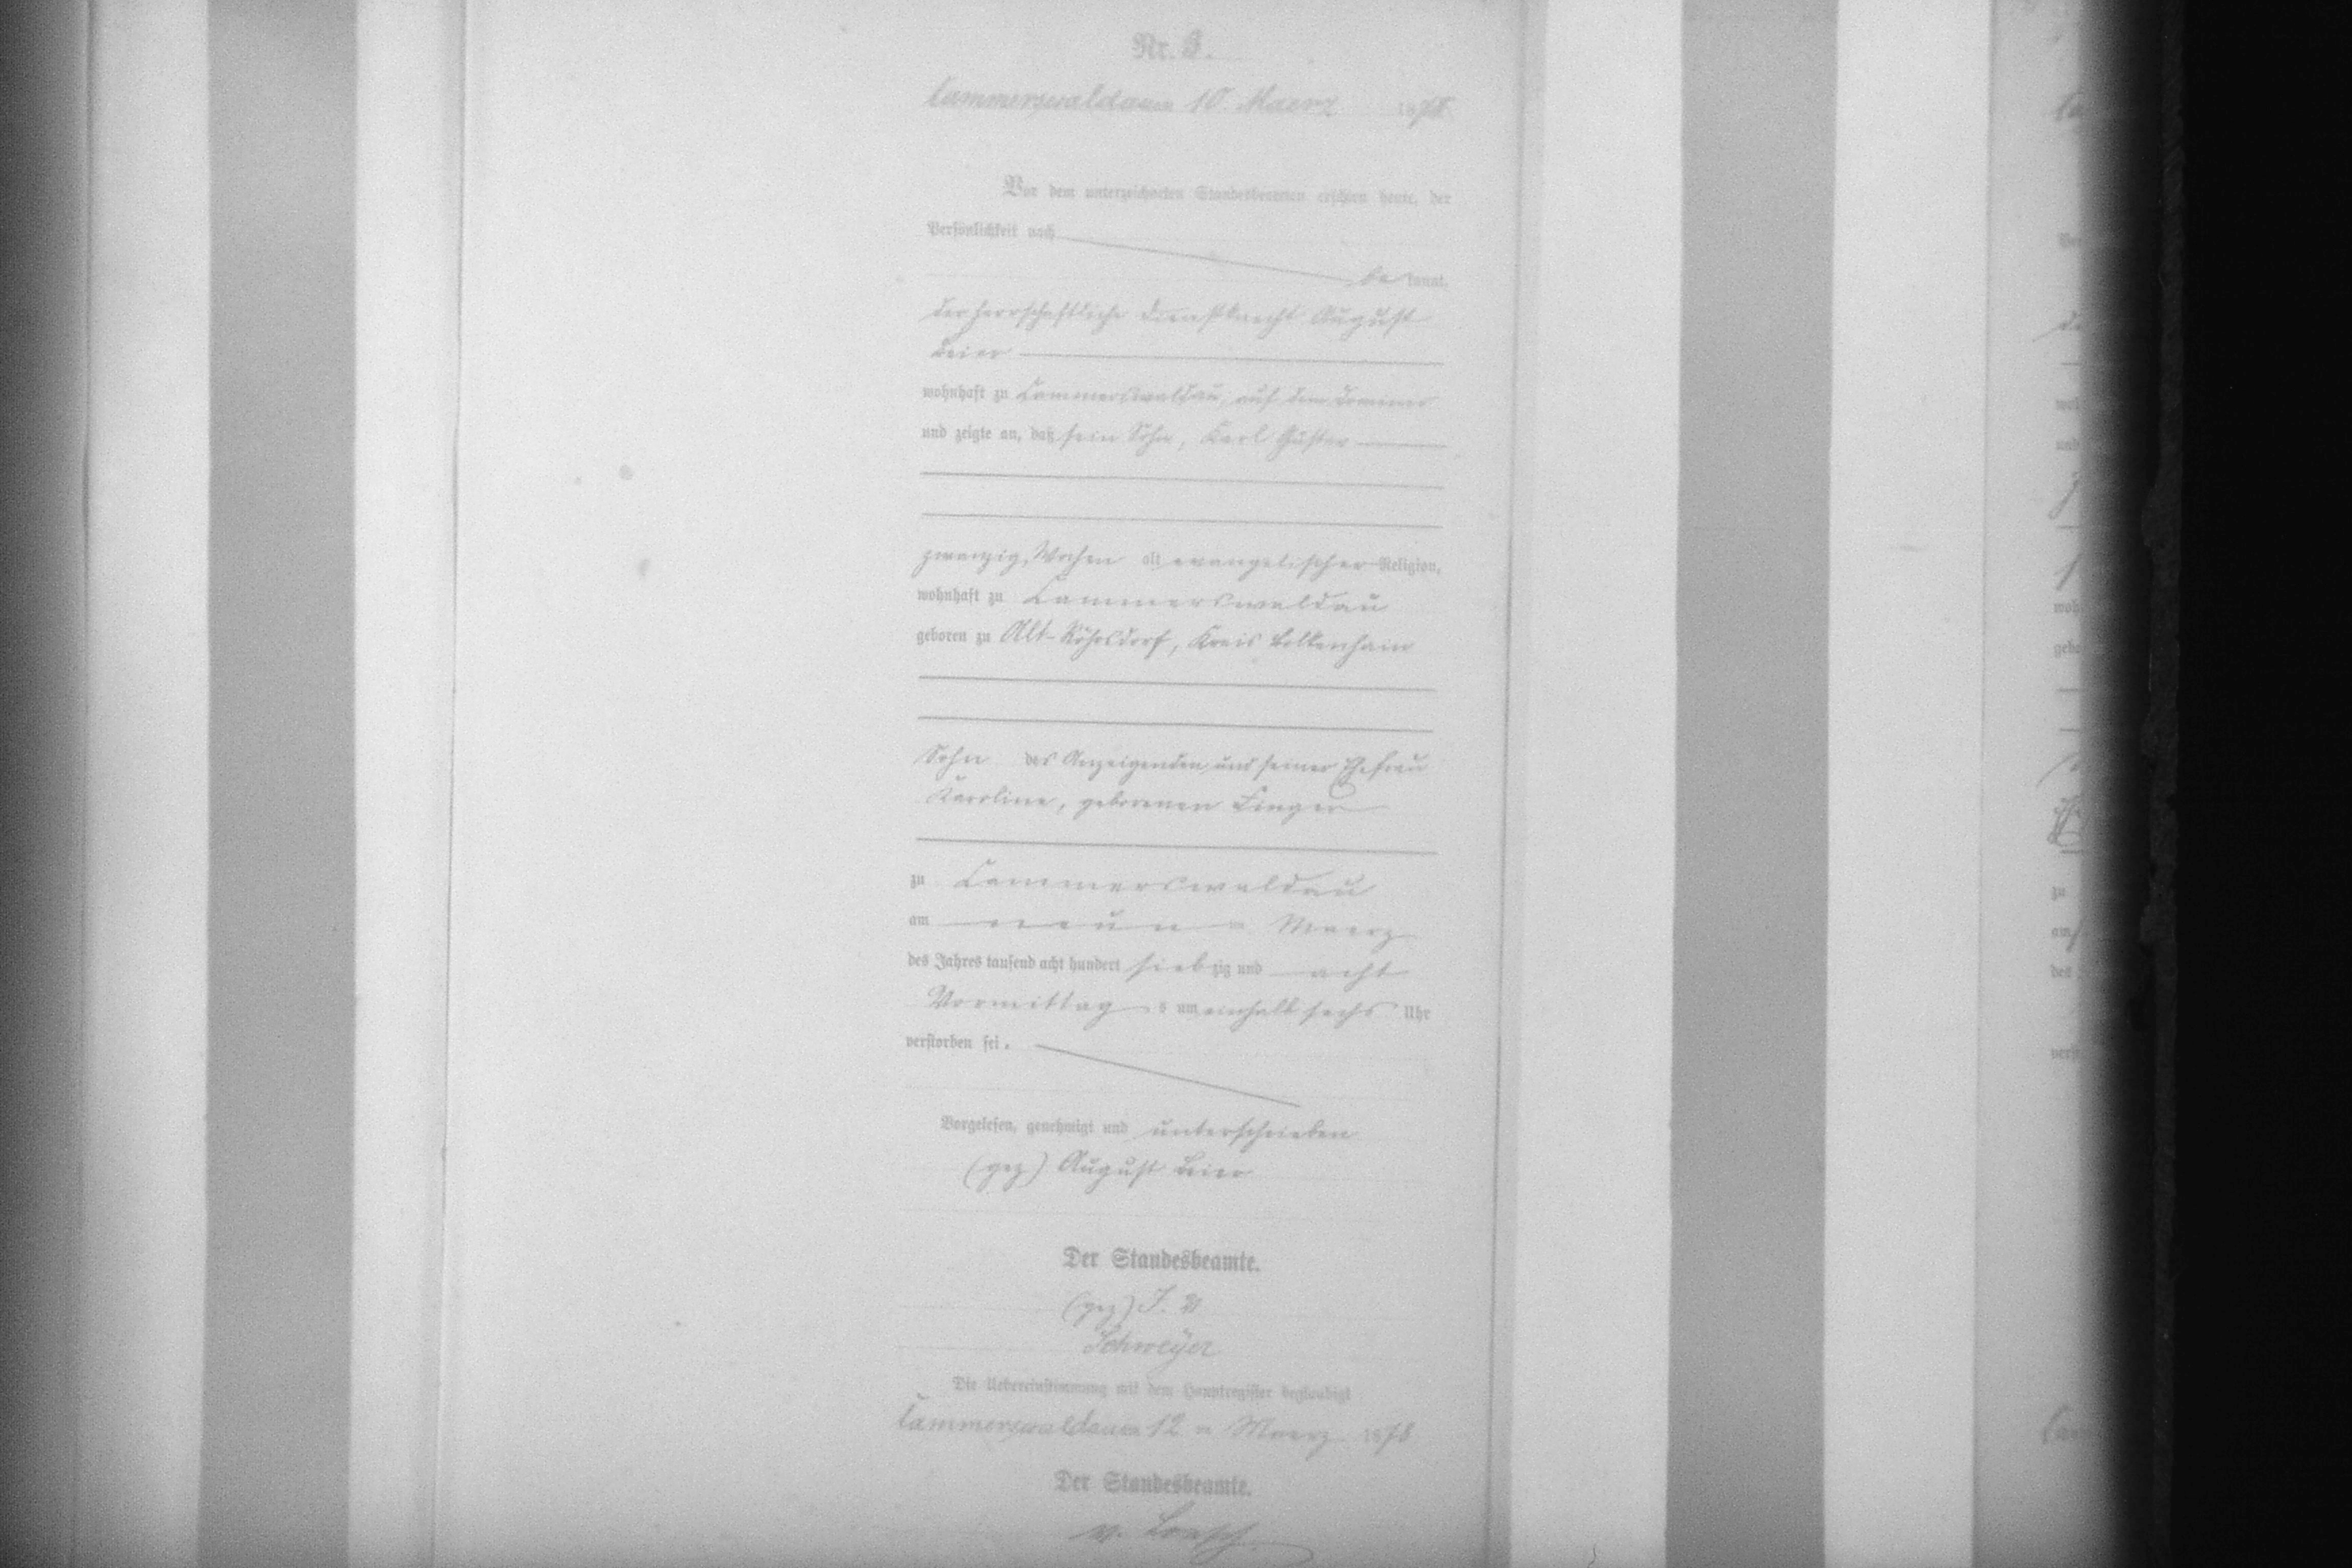 Nr. 8.
Cammerswaldau am 10. Maerz 1878
Vor dem unterzeichneten Standesbeamten erschien heute, der
Persönlichkeit nach
be kannt,
der herrschaftliche Dienstknecht August
Beier
wohnhaft zu Cammerswaldau, auf dem
und zeigte an, daß sein Sohn, Karl Gustav
zwanzig Wochen alt, evangelischer Religion,
wohnhaft zu Cammerswaldau
geboren zu Alt-Röhrsdorf, Kreis Bolkenhain
Sohn des Anzeigenden und seiner Ehefrau
Karoline, geborenen
zu Cammerswaldau
am neun ten Maerz
des Jahres tausend acht hundert sieb zig und acht
Vormittag s um einhalb sechs Uhr
verstorben sei.
Vorgelesen, genehmigt und unterschrieben
(gez) August Beier
Der Standesbeamte.
(gez) I. V.
Schweÿer
Die Uebereinstimmung mit dem Hauptregister beglaubigt
Cammerswaldau am 12 ten Maerz 1878
Der Standesbeamte.